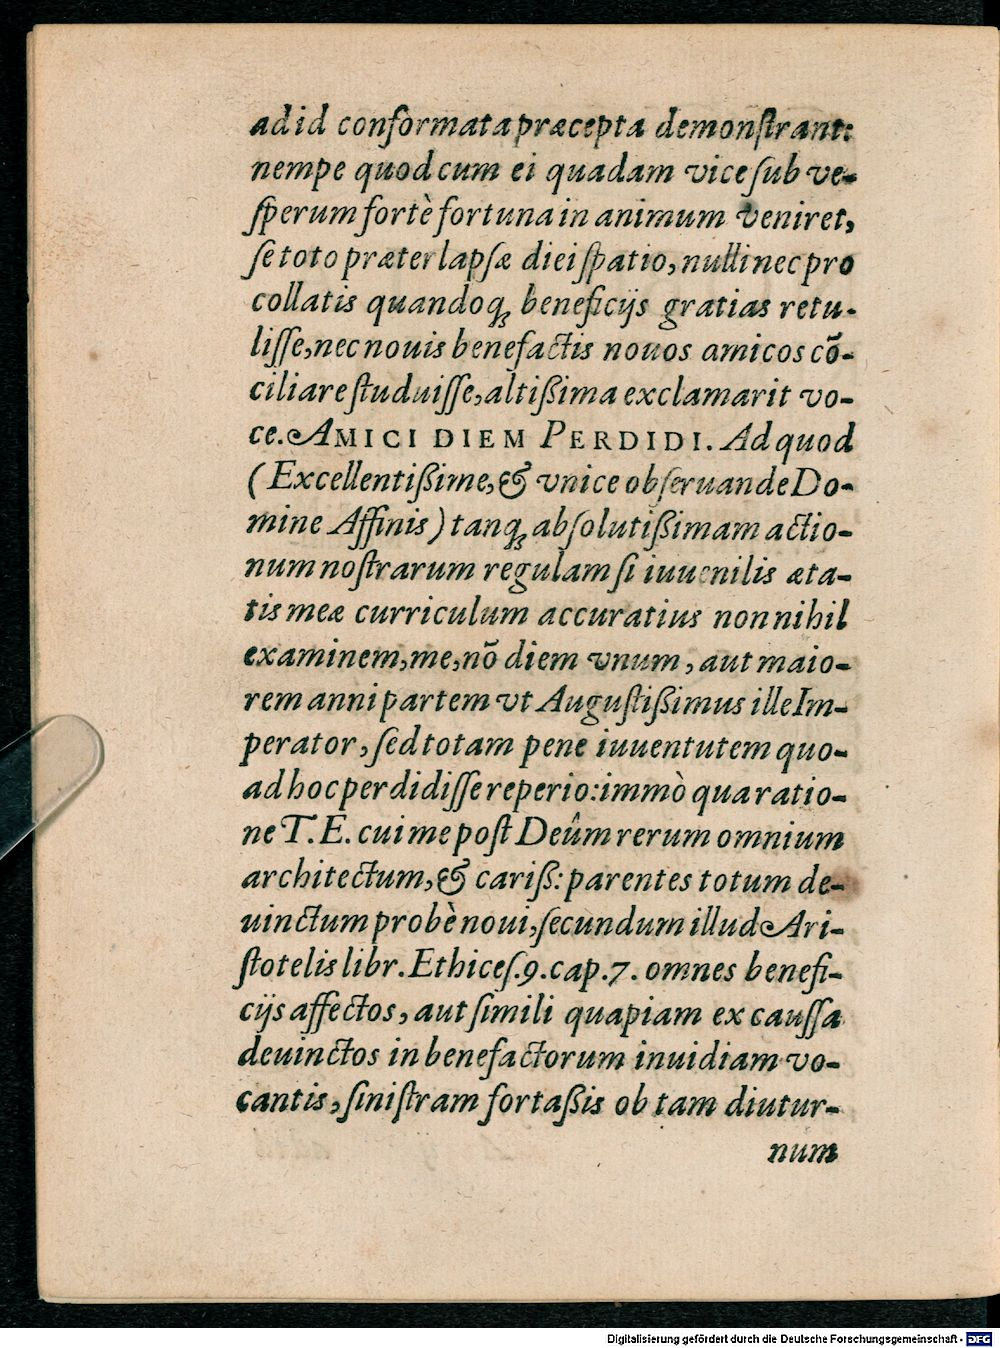 ad id conformata præcepta demonſtrant:
nempe quod cum ei quadam vice ſub ve-
ſperum fortè fortuna in animum veniret,
ſe toto præterlapſæ diei ſpatio, nulli nec pro
collatis quandoqꝫ beneficijs gratias retu-
liſſe, nec nouis benefactis nouos amicos cõ-
ciliare ſtuduiſſe, altißima exclamarit vo-
ce. AMICI DIEM PERDIDI. Ad quod
(Excellentißime, & vnice obſeruande Do-
mine Affinis) tanqꝫ abſolutißimam actio-
num noſtrarum regulam ſi iuuenilis æta-
tis meæ curriculum accuratius nonnihil
examinem, me, nõ diem vnum, aut maio-
rem anni partem vt Auguſtißimus ille Im-
perator, ſed totam pene iuuentutem quo-
ad hoc perdidiſſe reperio: immò qua ratio-
ne T. E. cui me poſt Deûm rerum omnium
architectum, & cariß: parentes totum de-
uinctum probè noui, ſecundum illud Ari-
ſtotelis libr. Ethiceſ. 9. cap. 7. omnes benefi-
cijs affectos, aut ſimili quapiam ex cauſſa
deuinctos in benefactorum inuidiam vo-
cantis, ſiniſtram fortaßis ob tam diutur-
num
Digitalisierung gefördert durch die Deutsche Forschungsgemeinschaft - DFG